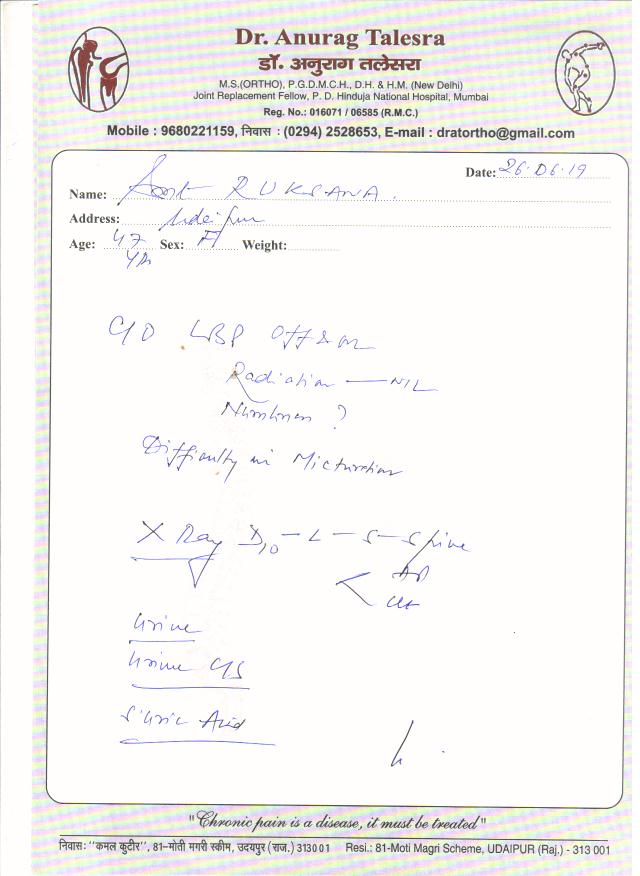 Dr. Anurag Talesra
डॉ. अनुराग तलेसरा
M.S.(ORTHO), P.G.D.M.C.H., D.H. & H.M. (New Delhi)
Joint Replacement Fellow, P. D. Hinduja National Hospital, Mumbai
Reg. No.: 016071 / 06585 (R.M.C.)
Mobile : 9680221159, निवास : (0294) 2528653, E-mail : dratortho@gmail.com
Date: 26.06.19
Name: RUKSANA.
Address: Udaipur
Age: 47 Yrs Sex: F Weight:
C/O LBP Off & on
Radiation — NIL
Numbness ?
Difficulty in Micturation
X Ray D10 - L - S - Spine
AP
Lat
Urine
Urine C/S
S. Uric Acid
"Chronic pain is a disease, it must be treated"
निवास: "कमल कुटीर", 81-मोती मगरी स्कीम, उदयपुर (राज.) 313001 Resi.: 81-Moti Magri Scheme, UDAIPUR (Raj.) - 313 001